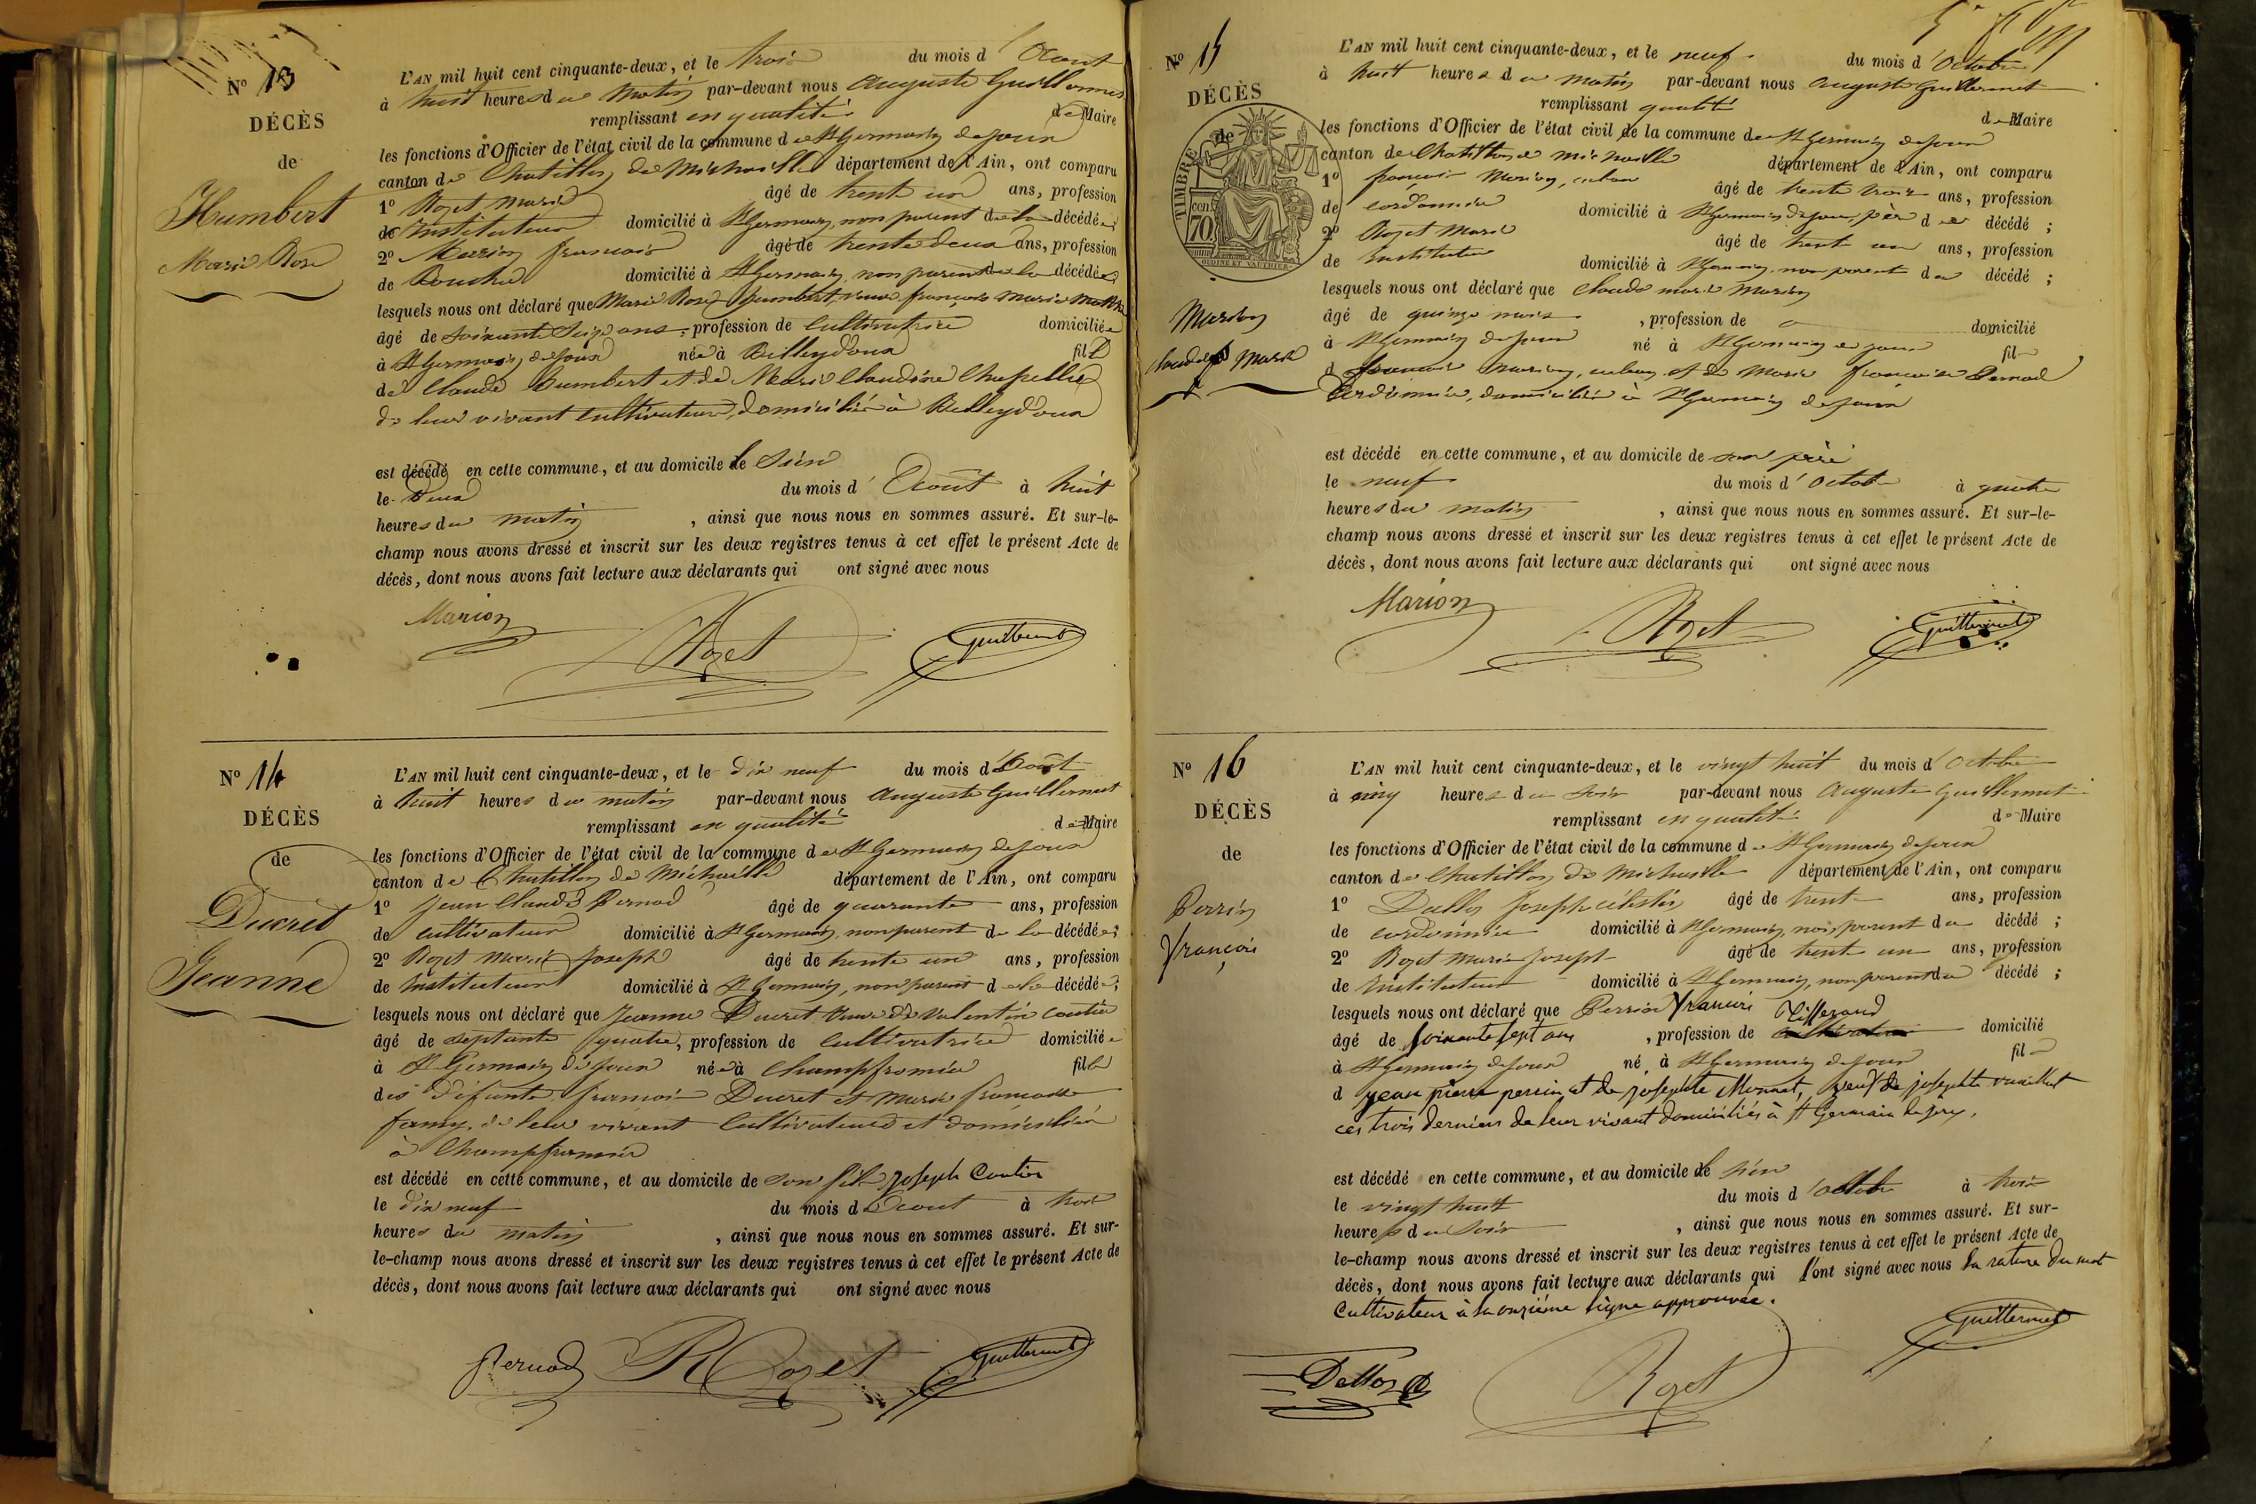 N° 13
DÉCÈS
de
Humbert
Marie Rose
L'AN mil huit cent cinquante-deux, et le trois du mois d'Aout
à huit heures du matin par-devant nous Auguste Guillermet
remplissant en qualité de Maire
les fonctions d'Officier de l'état civil de la commune de St Germain de Joux
canton de Chatillon de Michaille département de l'Ain, ont comparu
1° Rozet Marie âgé de trent un ans, profession
de Instituteur domicilié à St Germain, non parent de la décédée;
2° Marion françois âgé de trente deux ans, profession
de domicilié à St Germain, non parent de la décédée
lesquels nous ont déclaré que Marie Rose humbert, veuve françois Marie
âgé de soixante seize ans, profession de Cultivatrice domiciliée
à St Germain de Joux née à Belleydoux fille
de Claude humbert et de Marie Claudine Chapellu
de leur vivant cultivateurs, domiciliés à Belleydoux
est décédé en cette commune, et au domicile le sien
le deux du mois d'Aout à huit
heures du matin, ainsi que nous nous en sommes assuré. Et sur-le-
champ nous avons dressé et inscrit sur les deux registres tenus à cet effet le présent Acte de
décès, dont nous avons fait lecture aux déclarants qui ont signé avec nous
Marion Rozet Guillermet
N° 14
DÉCÈS
de
Ducret
Jeanne
L'AN mil huit cent cinquante-deux, et le dix neuf du mois d'Aout
à huit heures du matin par-devant nous Auguste Guillermet
remplissant en qualité de Maire
les fonctions d'Officier de l'état civil de la commune de St Germain de Joux
canton de Chatillon de Michaille département de l'Ain, ont comparu
1° Jean Claude Pernod âgé de quarante ans, profession
de cultivateur domicilié à St Germain, non parent de la décédée;
2° Rozet Marie Joseph âgé de trente un ans, profession
de Instituteur domicilié à St Germain, non parent de la décédée;
lesquels nous ont déclaré que Jeanne Ducret veuve de Valentin Coutier
âgé de septante quatre, profession de Cultivatrice domiciliée
à St Germain de Joux née à Champfromier fille
des défunts françois Ducret et Marie françoise
famy, de leur vivant Cultivateurs et domiciliés
à Champfromier
est décédé en cette commune, et au domicile de son fils Joseph Coutier
le dix neuf du mois d'Aout à trois
heures du matin, ainsi que nous nous en sommes assuré. Et sur-
le-champ nous avons dressé et inscrit sur les deux registres tenus à cet effet le présent Acte de
décès, dont nous avons fait lecture aux déclarants qui ont signé avec nous
Pernod Rozet Guillermet
N° 15
DÉCÈS
de
TIMBRE
70 cent
Marion
Claude Marie
L'AN mil huit cent cinquante-deux, et le neuf du mois d'Octobre
à huit heures du matin par-devant nous Auguste Guillermet
remplissant qualité de Maire
les fonctions d'Officier de l'état civil de la commune de St Germain de Joux
canton de Chatillon de Michaille département de l'Ain, ont comparu
1° françois Marion, âgé de trente trois ans, profession
de cordonnier domicilié à St Germain de Joux, père du décédé;
2° Rozet Marie âgé de trent un ans, profession
de Instituteur domicilié à St Germain, non parent du décédé;
lesquels nous ont déclaré que Claude Marie Marion
âgé de quinze mois, profession de domicilié
à St Germain de Joux né à St Germain de Joux fils
d françois Marion, et de Marie françoise Pernod
Cordonnier, domiciliés à St Germain de Joux
est décédé en cette commune, et au domicile de son père
le neuf du mois d'Octobre à quatre
heures du matin, ainsi que nous nous en sommes assuré. Et sur-le-
champ nous avons dressé et inscrit sur les deux registres tenus à cet effet le présent Acte de
décès, dont nous avons fait lecture aux déclarants qui ont signé avec nous
Marion Rozet Guillermet
N° 16
DÉCÈS
de
Perrin
François
L'AN mil huit cent cinquante-deux, et le vingt huit du mois d'Octobre
à cinq heures du soir par-devant nous Auguste Guillermet
remplissant en qualité de Maire
les fonctions d'Officier de l'état civil de la commune de St Germain de Joux
canton de Chatillon de Michaille département de l'Ain, ont comparu
1° Joseph célestin âgé de trent ans, profession
de cordonnier domicilié à St Germain, non parent du décédé;
2° Rozet Marie Joseph âgé de trent un ans, profession
de Instituteur domicilié à St Germain, non parent du décédé;
lesquels nous ont déclaré que Perrin François Tisserand
âgé de soixante sept ans, profession de cultivateur domicilié
à St Germain de Joux né à St Germain de Joux fils
d jean pierre perrin et de josephte Monnet, veuf de josephte
ces trois derniers de leur vivant domiciliés à St Germain de joux.
est décédé en cette commune, et au domicile le sien
le vingt huit du mois d'octobre à trois
heures du soir, ainsi que nous nous en sommes assuré. Et sur-
le-champ nous avons dressé et inscrit sur les deux registres tenus à cet effet le présent Acte de
décès, dont nous avons fait lecture aux déclarants qui l'ont signé avec nous la rature du mot
Cultivateur à la onzième ligne approuvée.
Rozet Guillermet